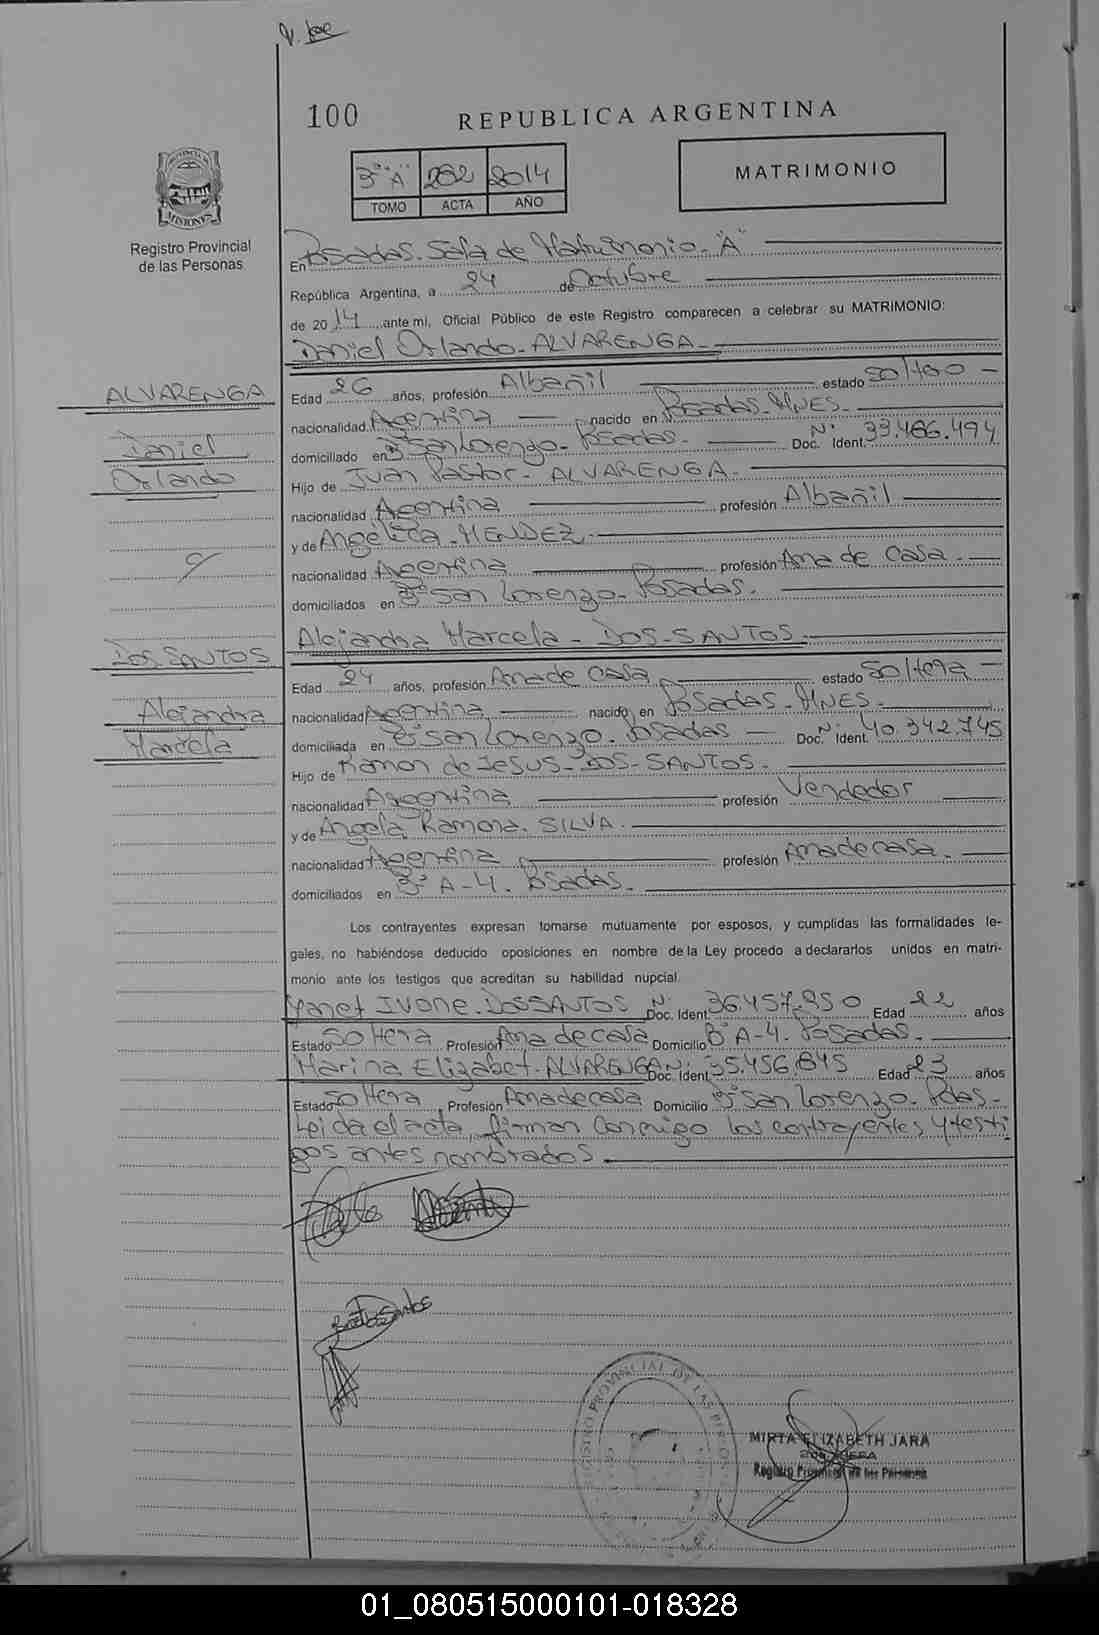 100
REPUBLICA ARGENTINA
3º "A" 202 2014
TOMO ACTA AÑO
MATRIMONIO
PROVINCIA DE MISIONES
Registro Provincial
de las Personas
En Posadas. Sala de Matrimonio "A"
República Argentina, a 24 de Octubre
de 2014, ante mi, Oficial Público de este Registro comparecen a celebrar su MATRIMONIO:
Daniel Orlando - ALVARENGA
ALVARENGA
Daniel
Orlando
Edad 26 años, profesión Albañil estado Soltero
nacionalidad Argentina nacido en Posadas - MNES.
domiciliado en Bº San Lorenzo - Posadas. Doc. Nº Ident. 33.486.494
Hijo de Juan Pastor - ALVARENGA.
nacionalidad Argentina profesión Albañil
y de Angélica - MENDEZ.
nacionalidad Argentina profesión Ama de Casa.
domiciliados en Bº San Lorenzo - Posadas.
Alejandra Marcela - DOS-SANTOS
DOS SANTOS
Alejandra
Marcela
Edad 24 años, profesión Ama de casa estado Soltera
nacionalidad Argentina nacido en Posadas - MNES.
domiciliada en Bº San Lorenzo. Posadas Doc. Nº Ident. 40.342.745
Hijo de Ramon de JESUS - DOS-SANTOS.
nacionalidad Argentina profesión Vendedor
y de Angela Ramona. SILVA.
nacionalidad Argentina profesión Ama de casa.
domiciliados en Bº A-4. Posadas.
Los contrayentes expresan tomarse mutuamente por esposos, y cumplidas las formalidades le-
gales, no habiéndose deducido oposiciones en nombre de la Ley procedo a declararlos unidos en matri-
monio ante los testigos que acreditan su habilidad nupcial.
Yanet IVONE. DOS SANTOS Doc. Nº Ident. 36.457.950 Edad 22 años
Estado Soltera Profesión Ama de casa Domicilio Bº A-4. Posadas.
Marina Elizabet - ALVARENGA Doc. Nº Ident. 35.456.845 Edad 23 años
Estado Soltera Profesión Ama de casa Domicilio Bº San Lorenzo - Pdas -
Leida el acta, firman Conmigo los contrayentes y testi
gos antes nombrados.
REGISTRO PROVINCIAL DE LAS PERSONAS
MIRTA ELIZABETH JARA
Registro Provincial de las Personas
01_080515000101-018328